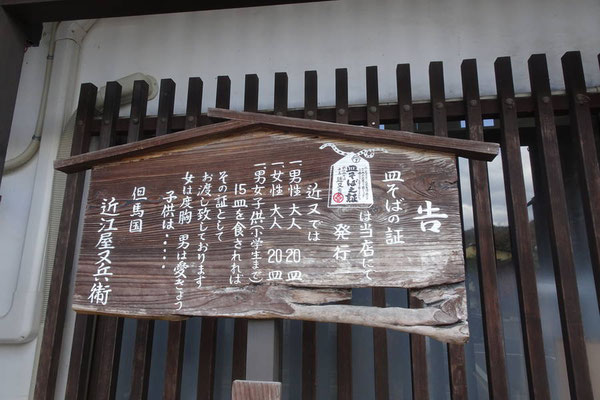 告
皿そばの証
皿そば之証
は当店にて
発行
近又では
一男性 大人 20皿
一女性 大人 20皿
一男女子供(小学生まで)
15皿を食されれば
その証として
お渡し致しております
女は度胸 男は愛きょう
子供は・・・・
但馬国
近江屋又兵衛